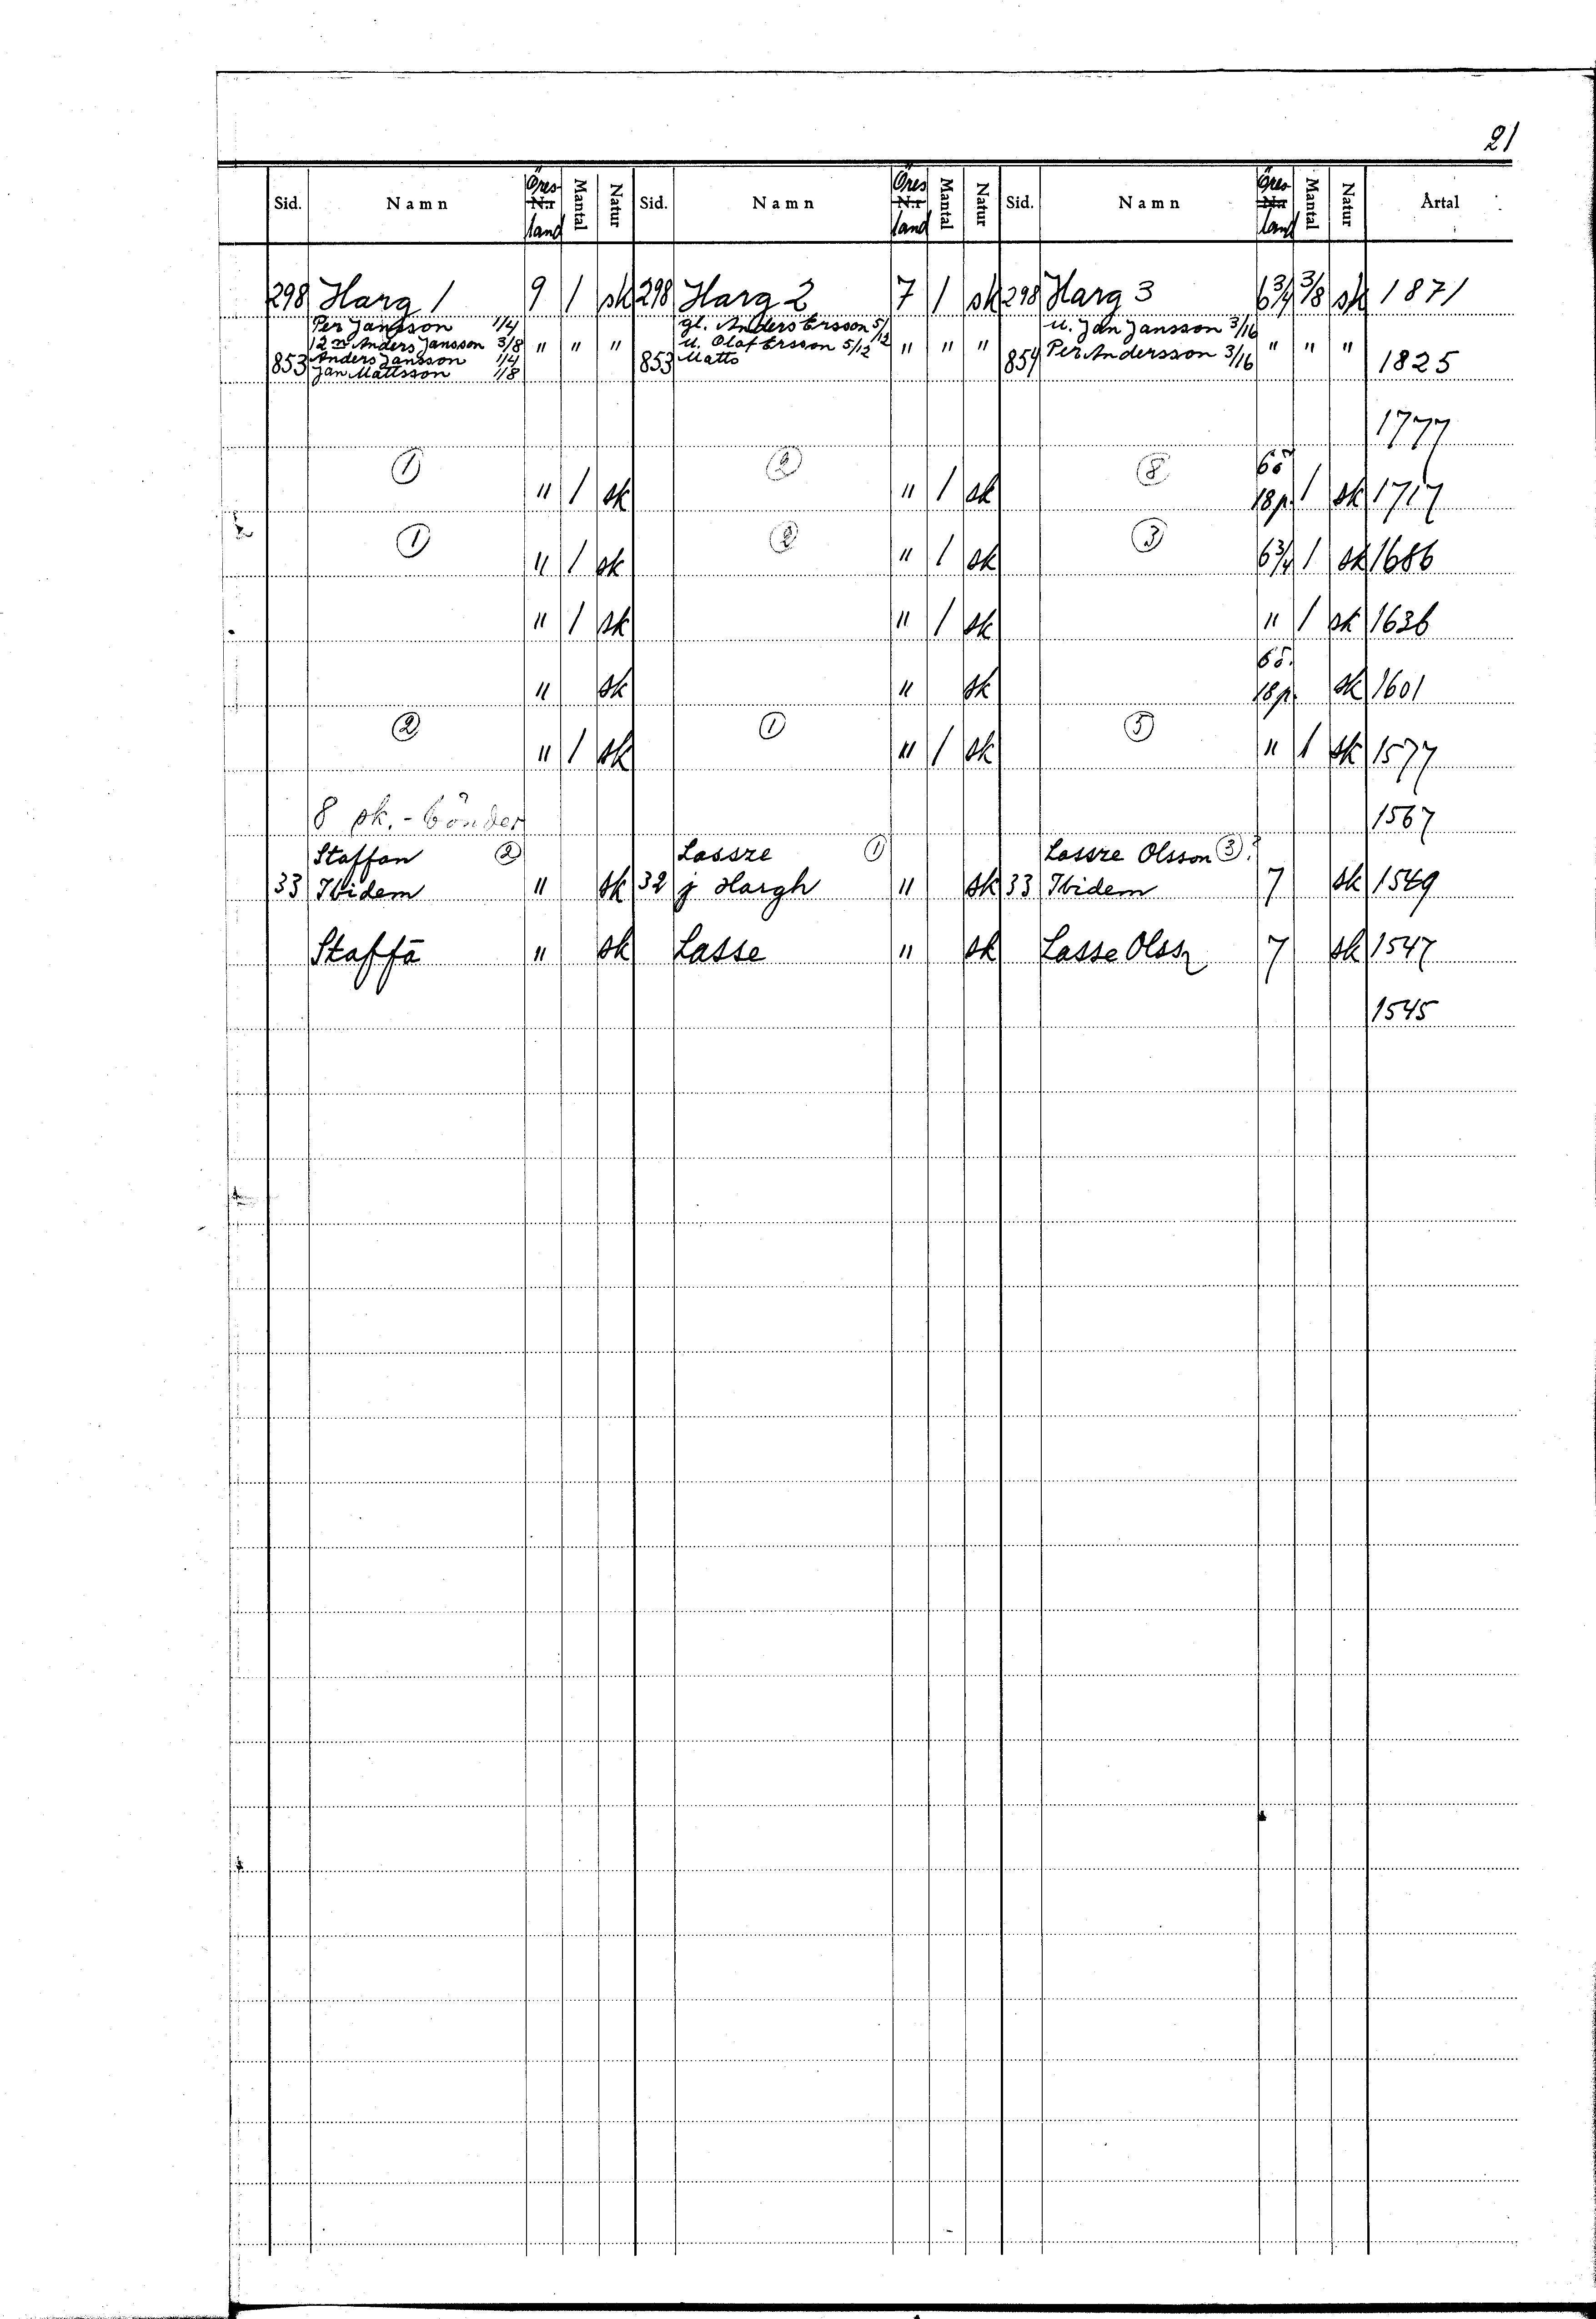 21
Sid. Namn Öres N:r land Mantal Natur Sid. Namn Öres N:r land Mantal Natur Sid. Namn Öres N:r land Mantal Natur Årtal
298 Harg 1 9 1 sk 298 Harg 2 7 1 sk 298 Harg 3 6 3/4 3/8 sk 1871
Per Jansson 1/4 gl. Anders Ersson 5/12 u. Jan Jansson 3/16
12 m Anders Jansson 3/8 " " " u. Olof Ersson 5/12 " " " Per Andersson 3/16 " " "
853 Anders Jansson 1/4 853 Matts 854 1825
Jan Mattsson 1/8
1777
① ② ⑧ 6ö
" 1 sk " 1 sk 18p. 1 sk 1717
① ② ③
" 1 sk " 1 sk 6 3/4 1 sk 1686
" 1 sk " 1 sk " 1 sk 1636
6ö.
" sk " sk 18p. sk 1601
② ① ⑤
" 1 sk " 1 sk " 1 sk 1577
8 sk.-bönder 1567
Staffan ② Lassze ① Lassze Olsson ③?
33 Ibidem " sk 32 j Hargh " sk 33 Ibidem 7 sk 1549
Staffā " sk Lasse " sk Lasse Olss 7 sk 1547
1545